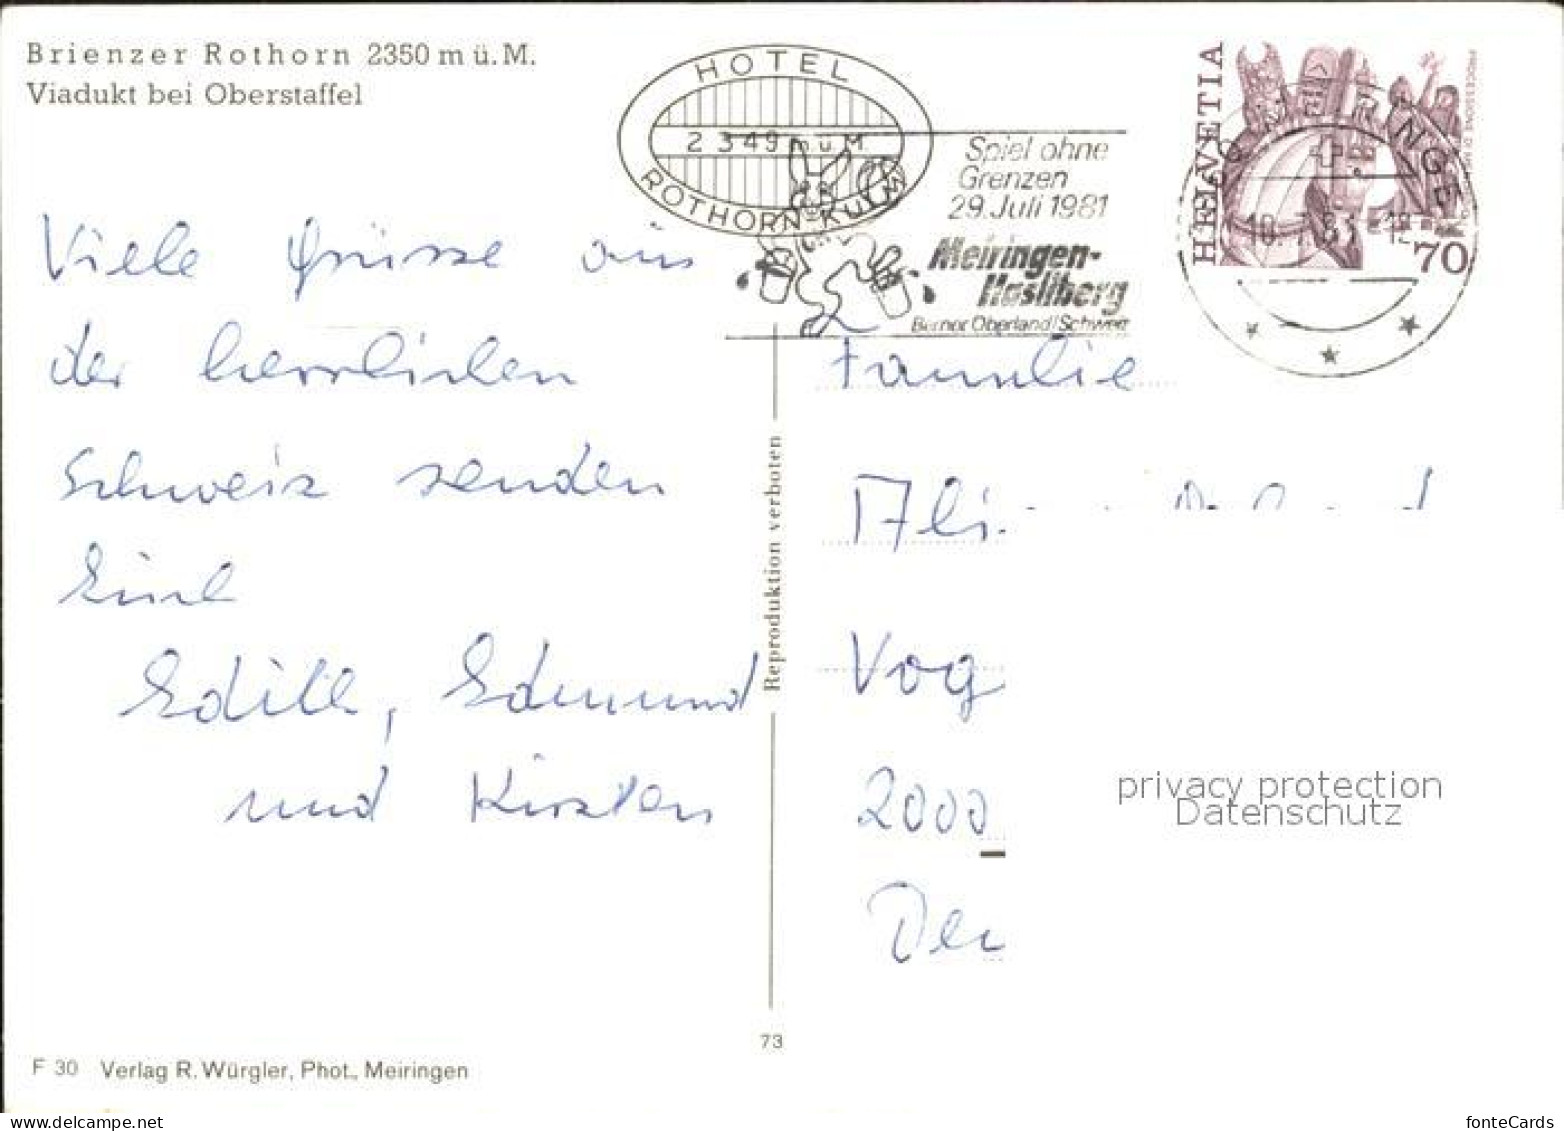 Brienzer Rothorn 2350 m ü. M.
Viadukt bei Oberstaffel
HOTEL
2349 m ü M
ROTHORN KULM
Spiel ohne
Grenzen
29. Juli 1981
Meiringen-
Hasliberg
Berner Oberland/Schweiz
HELVETIA
70
Viele Grüsse aus
der herrlichen
Schweiz senden
Euch
Edith, Edmund
und Kirsten
Reproduktion verboten
Familie
Vog
2000
privacy protection
Datenschutz
73
F 30 Verlag R. Würgler, Phot., Meiringen
www.delcampe.net
fonteCards